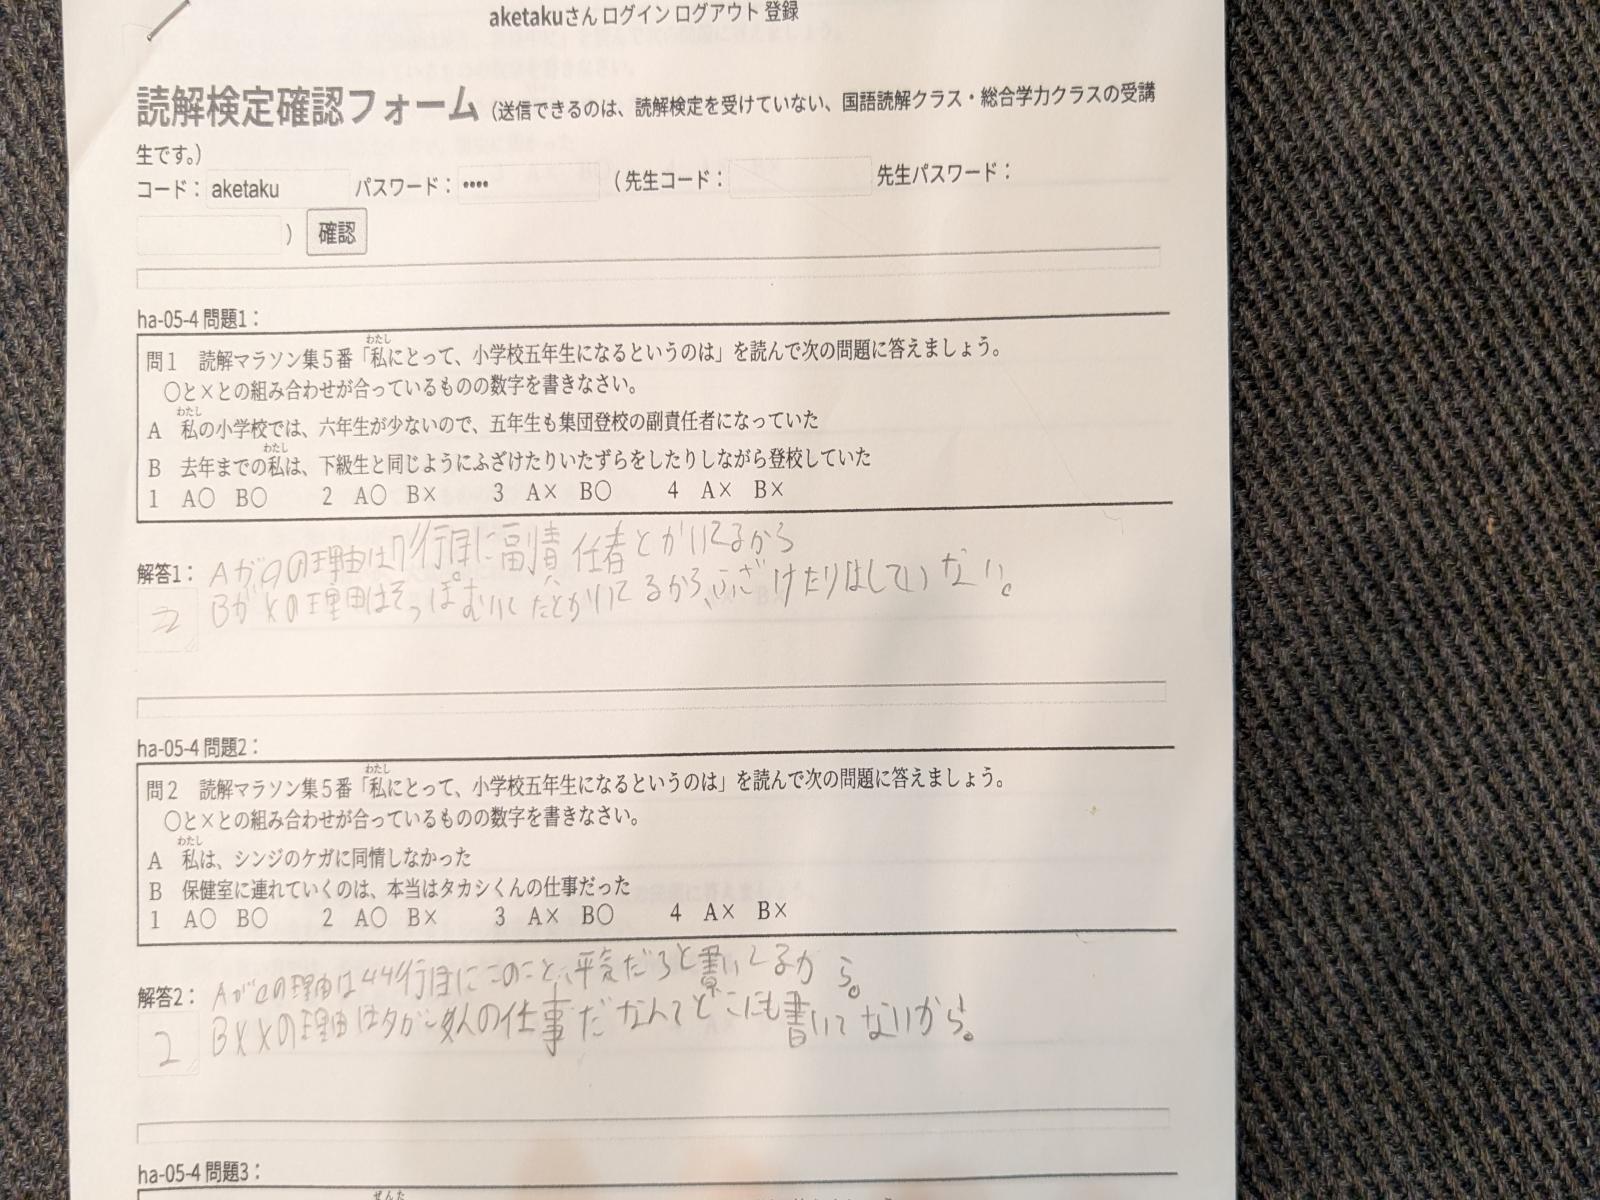 aketakuさん ログイン ログアウト 登録
読解検定確認フォーム（送信できるのは、読解検定を受けていない、国語読解クラス・総合学力クラスの受講
生です。）
コード： aketaku パスワード： •••• （先生コード： 先生パスワード：
） 確認
ha-05-4 問題1：
わたし
問１ 読解マラソン集５番「私にとって、小学校五年生になるというのは」を読んで次の問題に答えましょう。
〇と×との組み合わせが合っているものの数字を書きなさい。
わたし
A 私の小学校では、六年生が少ないので、五年生も集団登校の副責任者になっていた
わたし
B 去年までの私は、下級生と同じようにふざけたりいたずらをしたりしながら登校していた
1 A〇 B〇 2 A〇 B× 3 A× B〇 4 A× B×
解答1： Aが〇の理由は 行目に副責任者とかいてるから
2 Bが×の理由はそっぽむいてたとかいてるから、ふざけたりはしていない。
ha-05-4 問題2：
わたし
問２ 読解マラソン集５番「私にとって、小学校五年生になるというのは」を読んで次の問題に答えましょう。
〇と×との組み合わせが合っているものの数字を書きなさい。
わたし
A 私は、シンジのケガに同情しなかった
B 保健室に連れていくのは、本当はタカシくんの仕事だった
1 A〇 B〇 2 A〇 B× 3 A× B〇 4 A× B×
解答2： Aが〇の理由は44行目にこのこと、平気だろと書いてるから。
2 B ×の理由はタカシ の仕事だなんてどこにも書いてないから。
ha-05-4 問題3：
ぜんた